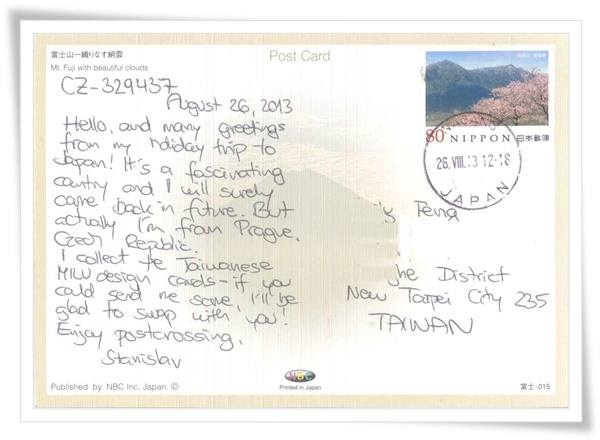 富士山一織りなす絹雲
Mt. Fuji with beautiful clouds
Post Card
CZ-329437
August 26, 2013
Hello, and many greetings
from my holiday trip to
Japan! It's a fascinating
country and I will surely
came back in future. But
actually I'm from Prague,
Czech Republic.
I collect te Taiwanese
MIW design cards - if you
could send me some, I'll be
glad to swap with you!
Enjoy postcrossing,
Stanislav
80 NIPPON 日本郵便
26.VIII.13 12-18
JAPAN
Peng
District
New Taipei City 235
TAIWAN
Published by NBC Inc. Japan. ©
NBC
Printed in Japan
富士-015